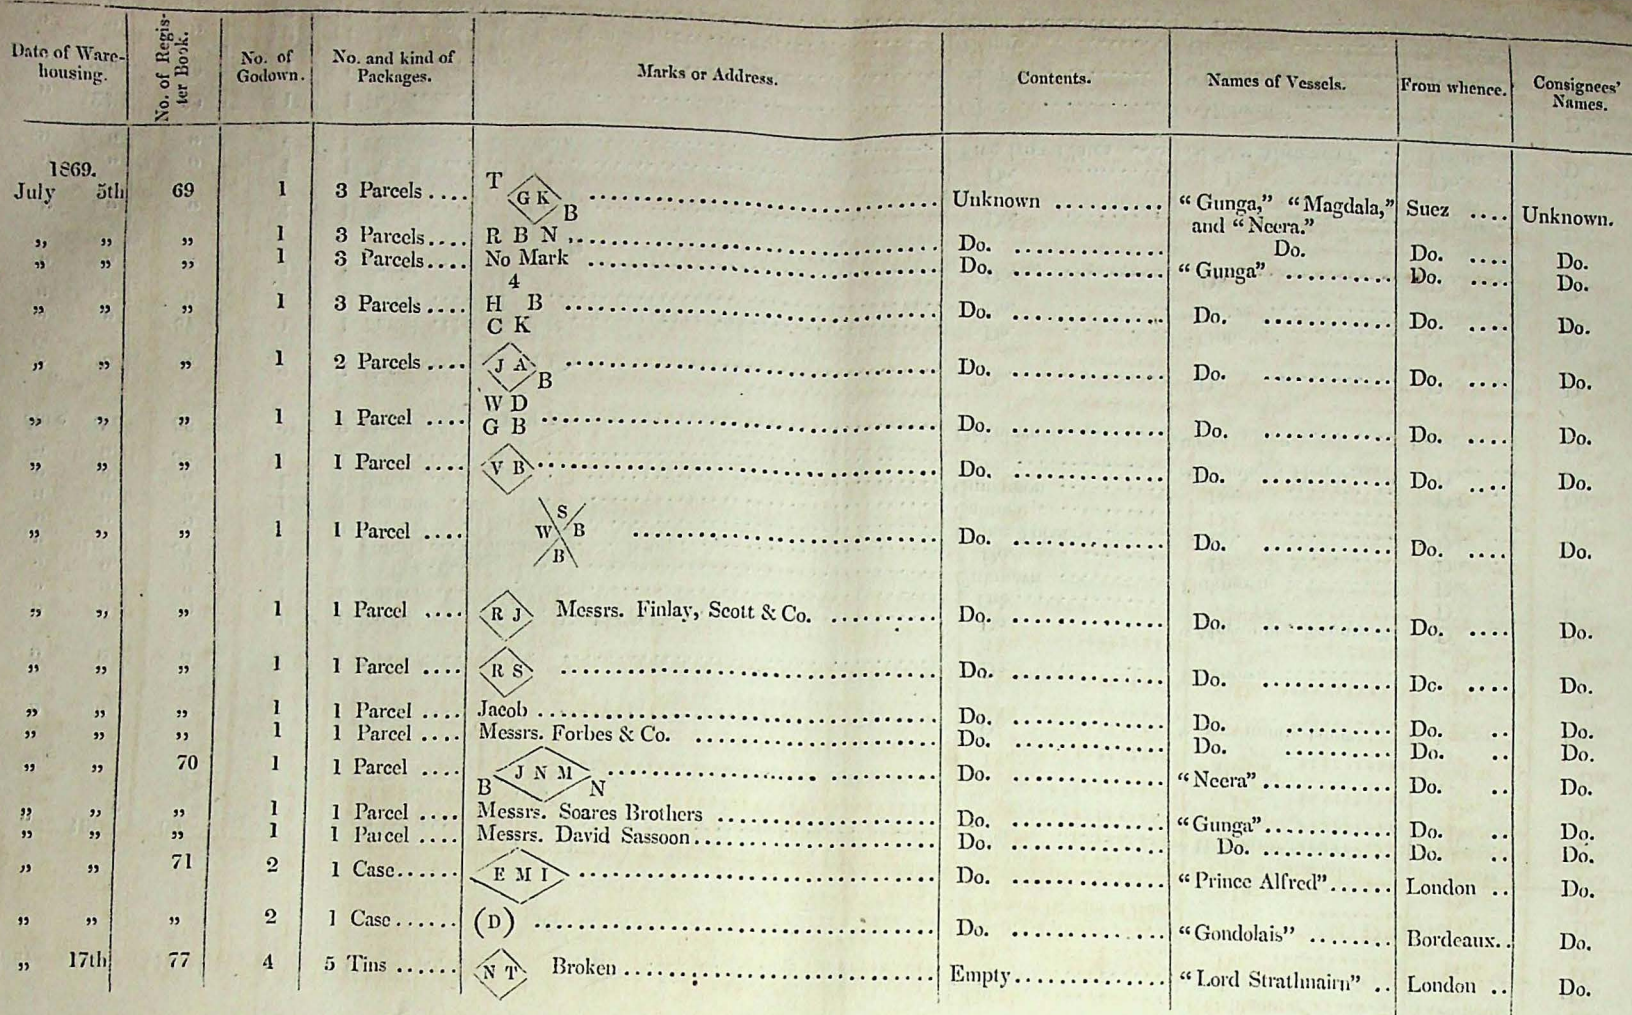 Date of Ware- housing. No. of Regis- ter Book. No. of Godown. No. and kind of Packages. Marks or Address. Contents. Names of Vessels. From whence. Consignees' Names.
1869.
July 5th 69 1 3 Parcels .... T G K B .... Unknown .... "Gunga," "Magdala," and "Neera." Suez .... Unknown.
„ „ „ 1 3 Parcels .... R B N .... Do. .... Do. Do. .... Do.
„ „ „ 1 3 Parcels .... No Mark .... Do. .... "Gunga" .... Do. .... Do.
4
„ „ „ 1 3 Parcels .... H B .... Do. .... Do. .... Do. .... Do.
C K
„ „ „ 1 2 Parcels .... J A B .... Do. .... Do. .... Do. .... Do.
W D
„ „ „ 1 1 Parcel .... G B .... Do. .... Do. .... Do. .... Do.
„ „ „ 1 1 Parcel .... V B .... Do. .... Do. .... Do. .... Do.
S
„ „ „ 1 1 Parcel .... W B .... Do. .... Do. .... Do. .... Do.
B
„ „ „ 1 1 Parcel .... R J Messrs. Finlay, Scott & Co. .... Do. .... Do. .... Do. .... Do.
„ „ „ 1 1 Parcel .... R S .... Do. .... Do. .... Do. .... Do.
„ „ „ 1 1 Parcel .... Jacob .... Do. .... Do. .... Do. .. Do.
„ „ „ 1 1 Parcel .... Messrs. Forbes & Co. .... Do. .... Do. .... Do. .. Do.
„ „ 70 1 1 Parcel .... B J N M N .... Do. .... "Neera" .... Do. .. Do.
„ „ „ 1 1 Parcel .... Messrs. Soares Brothers .... Do. .... "Gunga" .... Do. .. Do.
„ „ „ 1 1 Parcel .... Messrs. David Sassoon .... Do. .... Do. .... Do. .. Do.
„ „ 71 2 1 Case...... E M I .... Do. .... "Prince Alfred"...... London .. Do.
„ „ „ 2 1 Case...... (D) .... Do. .... "Gondolais" .... Bordeaux.. Do.
„ 17th 77 4 5 Tins ...... N T Broken .... Empty .... "Lord Strathnairn" .. London .. Do.